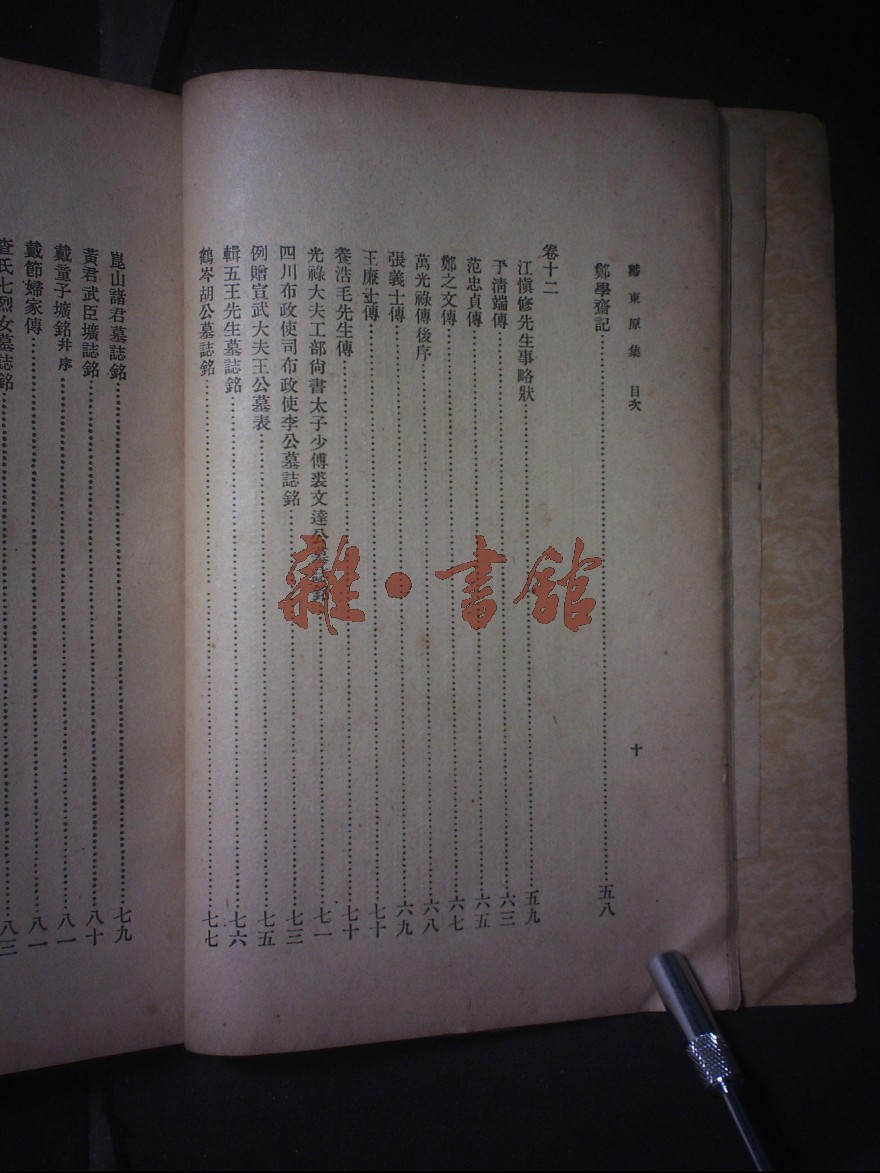 戴東原集 目次 十
鄭學齋記 五八
卷十二
江慎修先生事略狀 五九
于清端傳 六三
范忠貞傳 六五
鄭之文傳 六七
萬光祿傳後序 六八
張義士傳 六九
王廉士傳 七十
養浩毛先生傳 七十
光祿大夫工部尚書太子少傅裘文達公墓誌銘 七一
四川布政使司布政使李公墓誌銘 七三
例贈宣武大夫王公墓表 七五
輯五王先生墓誌銘 七六
鶴岑胡公墓誌銘 七七
崑山諸君墓誌銘 七九
黃君武臣壙誌銘 八十
戴童子壙銘并序 八一
戴節婦家傳 八一
查氏七烈女墓誌銘 八三
雜·書館